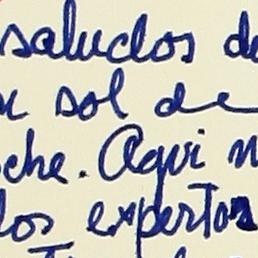 saludos d
sol de
che. Aqui n
los expertos